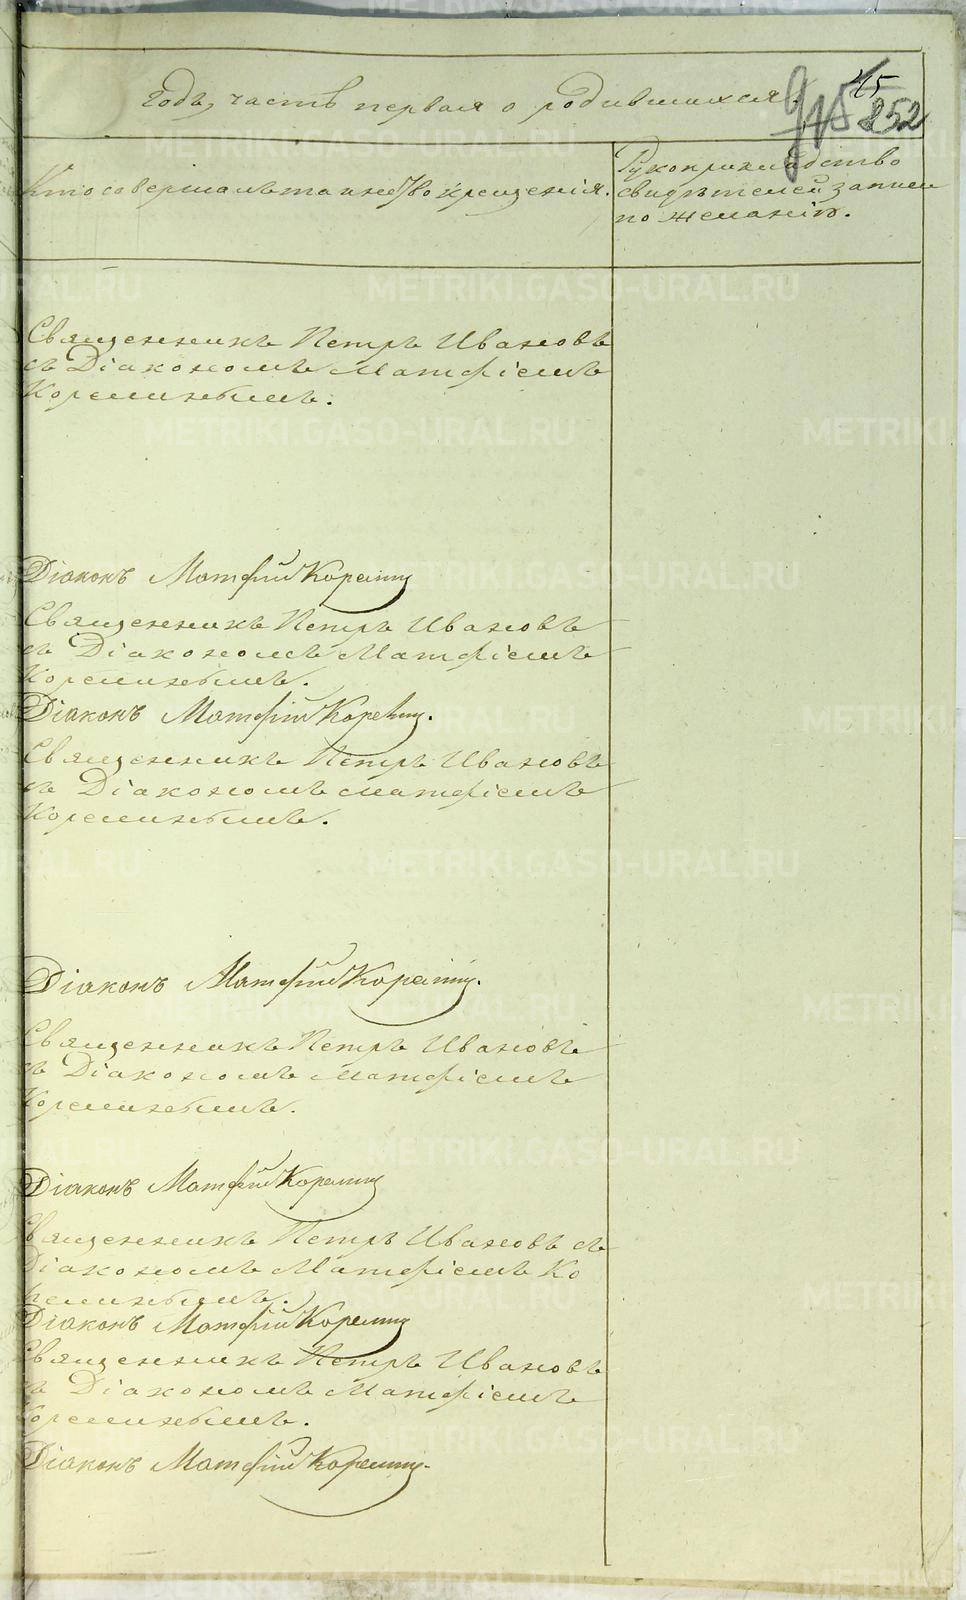 годъ, часть первая о родившихся.
45
915 252
Кто совершалъ таинство крещенія.
Рукоприкладство
свидѣтелей записи
по желанію.
Священникъ Петръ Ивановъ
съ Діакономъ Матфіемъ
Кореминымъ.
Діаконъ Матфій Коремин
Священникъ Петръ Ивановъ
съ Діакономъ Матфіемъ
Кореминымъ.
Діаконъ Матфій Коремин.
Священникъ Петръ Ивановъ
съ Діакономъ Матфіемъ
Кореминымъ.
Діаконъ Матфій Коремин.
Священникъ Петръ Ивановъ
съ Діакономъ Матфіемъ
Кореминымъ.
Діаконъ Матфій Коремин
Священникъ Петръ Ивановъ съ
Діакономъ Матфіемъ Ко
реминымъ.
Діаконъ Матфій Коремин
Священникъ Петръ Ивановъ
съ Діакономъ Матфіемъ
Кореминымъ.
Діаконъ Матфій Коремин.
METRIKI.GASO-URAL.RU